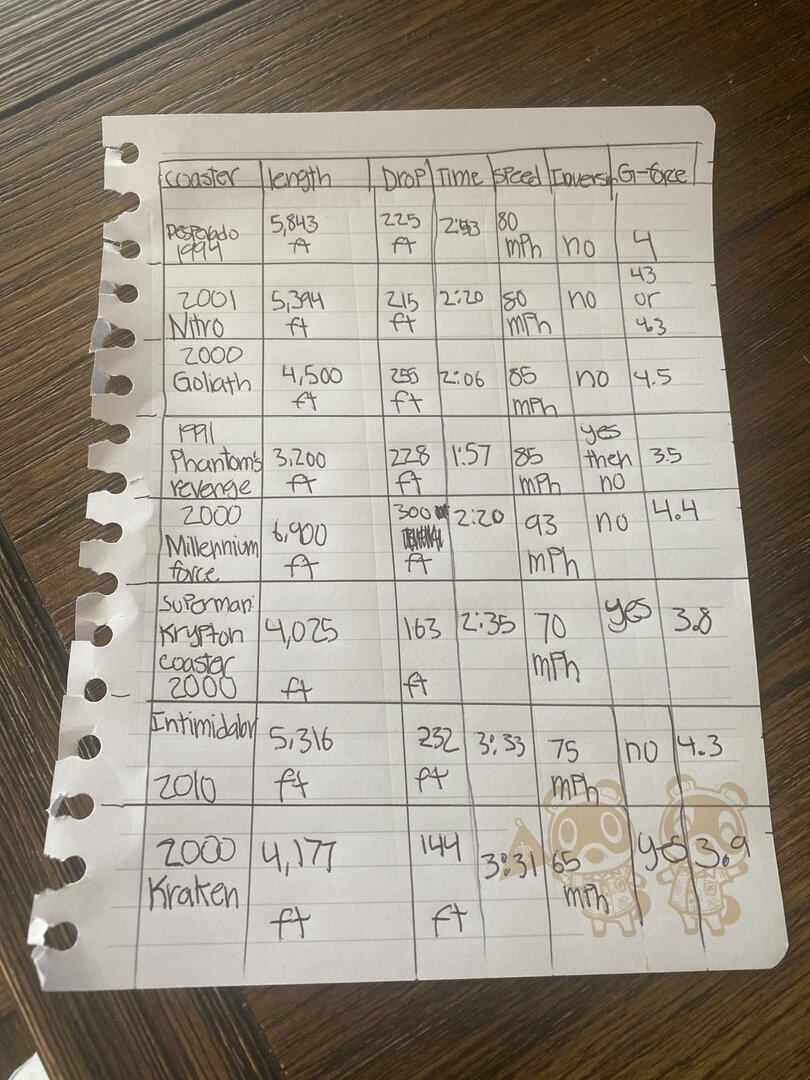 coaster length Drop Time Speed Inversn G-force
Desperado 5,843 225 2:53 80
1994 ft ft mph no 4
2001 5,394 215 2:20 80 no 43
Nitro ft ft mph or
4.3
2000
Goliath 4,500 255 2:06 85 no 4.5
ft ft mph
1991 yes
Phantom's 3,200 228 1:57 85 then 3.5
revenge ft ft mph no
2000 300 2:20 93 no 4.4
Millennium 6,900 mph
force ft ft
Superman: yes
Krypton 4,025 163 2:35 70 3.8
coaster mph
2000 ft ft
Intimidator 5,316 232 3:33 75 no 4.3
2010 ft ft mph
2000 4,177 144 3:31 65 yes 3.9
Kraken ft ft mph